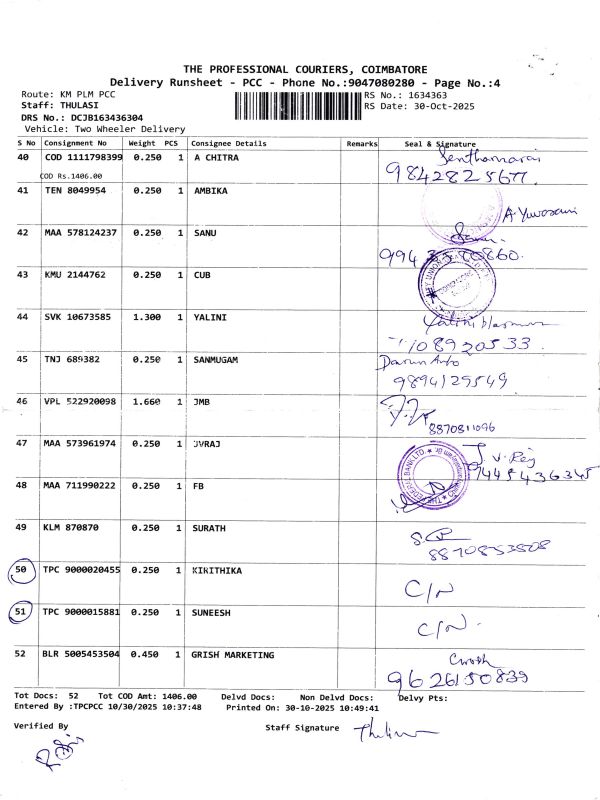 THE PROFESSIONAL COURIERS, COIMBATORE
Delivery Runsheet - PCC - Phone No.:9047080280 - Page No.:4
Route: KM PLM PCC RS No.: 1634363
Staff: THULASI RS Date: 30-Oct-2025
DRS No.: DCJB163436304
Vehicle: Two Wheeler Delivery
S No Consignment No Weight PCS Consignee Details Remarks Seal & Signature
40 COD 1111798399 0.250 1 A CHITRA Senthamarai
COD Rs.1406.00 9842825677
41 TEN 8049954 0.250 1 AMBIKA
A. Yuvarani
42 MAA 578124237 0.250 1 SANU
43 KMU 2144762 0.250 1 CUB
44 SVK 10673585 1.300 1 YALINI
45 TNJ 689382 0.250 1 SANMUGAM
9894129549
46 VPL 522920098 1.660 1 JMB
8870811096
47 MAA 573961974 0.250 1 JVRAJ J. V. Raj
9445436345
THE FEDERAL BANK LTD.
48 MAA 711990222 0.250 1 FB
49 KLM 870870 0.250 1 SURATH
50 TPC 9000020455 0.250 1 KIRITHIKA C/N
51 TPC 9000015881 0.250 1 SUNEESH C/N.
52 BLR 5005453504 0.450 1 GRISH MARKETING
9626150839
Tot Docs: 52 Tot COD Amt: 1406.00 Delvd Docs: Non Delvd Docs: Delvy Pts:
Entered By :TPCPCC 10/30/2025 10:37:48 Printed On: 30-10-2025 10:49:41
Verified By Staff Signature